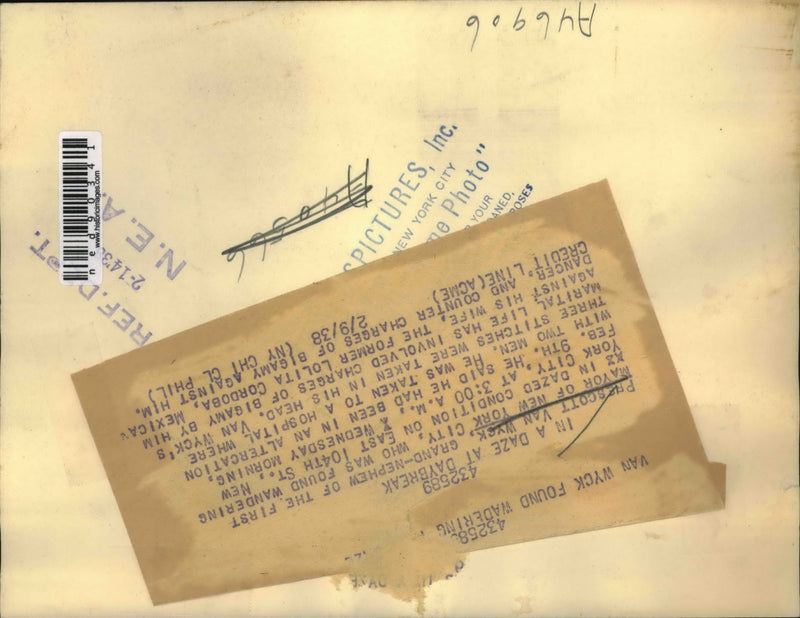 A46906
ned90341
www.historicimages.com
REF. DEPT.
2-14-38
N. E. A.
PICTURES, Inc.
NEW YORK CITY
Photo"
YOUR
43258
VAN WYCK FOUND WADERING
432589
IN A DAZE AT DAYBREAK
PRESCOTT VAN WYCK, GRAND-NEPHEW OF THE FIRST
MAYOR OF NEW YORK CITY, WHO WAS FOUND WANDERING
IN DAZED CONDITION ON EAST 104TH ST., NEW
YORK CITY, AT 3:00 A.M., WEDNESDAY MORNING,
FEB. 9TH. HE SAID HE HAD BEEN IN AN ALTERCATION
WITH TWO MEN. HE WAS TAKEN TO A HOSPITAL WHERE
THREE STITCHES WERE TAKEN IN HIS HEAD. VAN WYCK'S
MARITAL LIFE HAS INVOLVED CHARGES OF BIGAMY BY HIM
AGAINST HIS WIFE, THE FORMER LOLITA CORDOBA, MEXICAN
DANCER, AND COUNTER CHARGES OF BIGAMY AGAINST HIM.
CREDIT LINE(ACME) 2/9/38 (NY CHI CL PHIL)